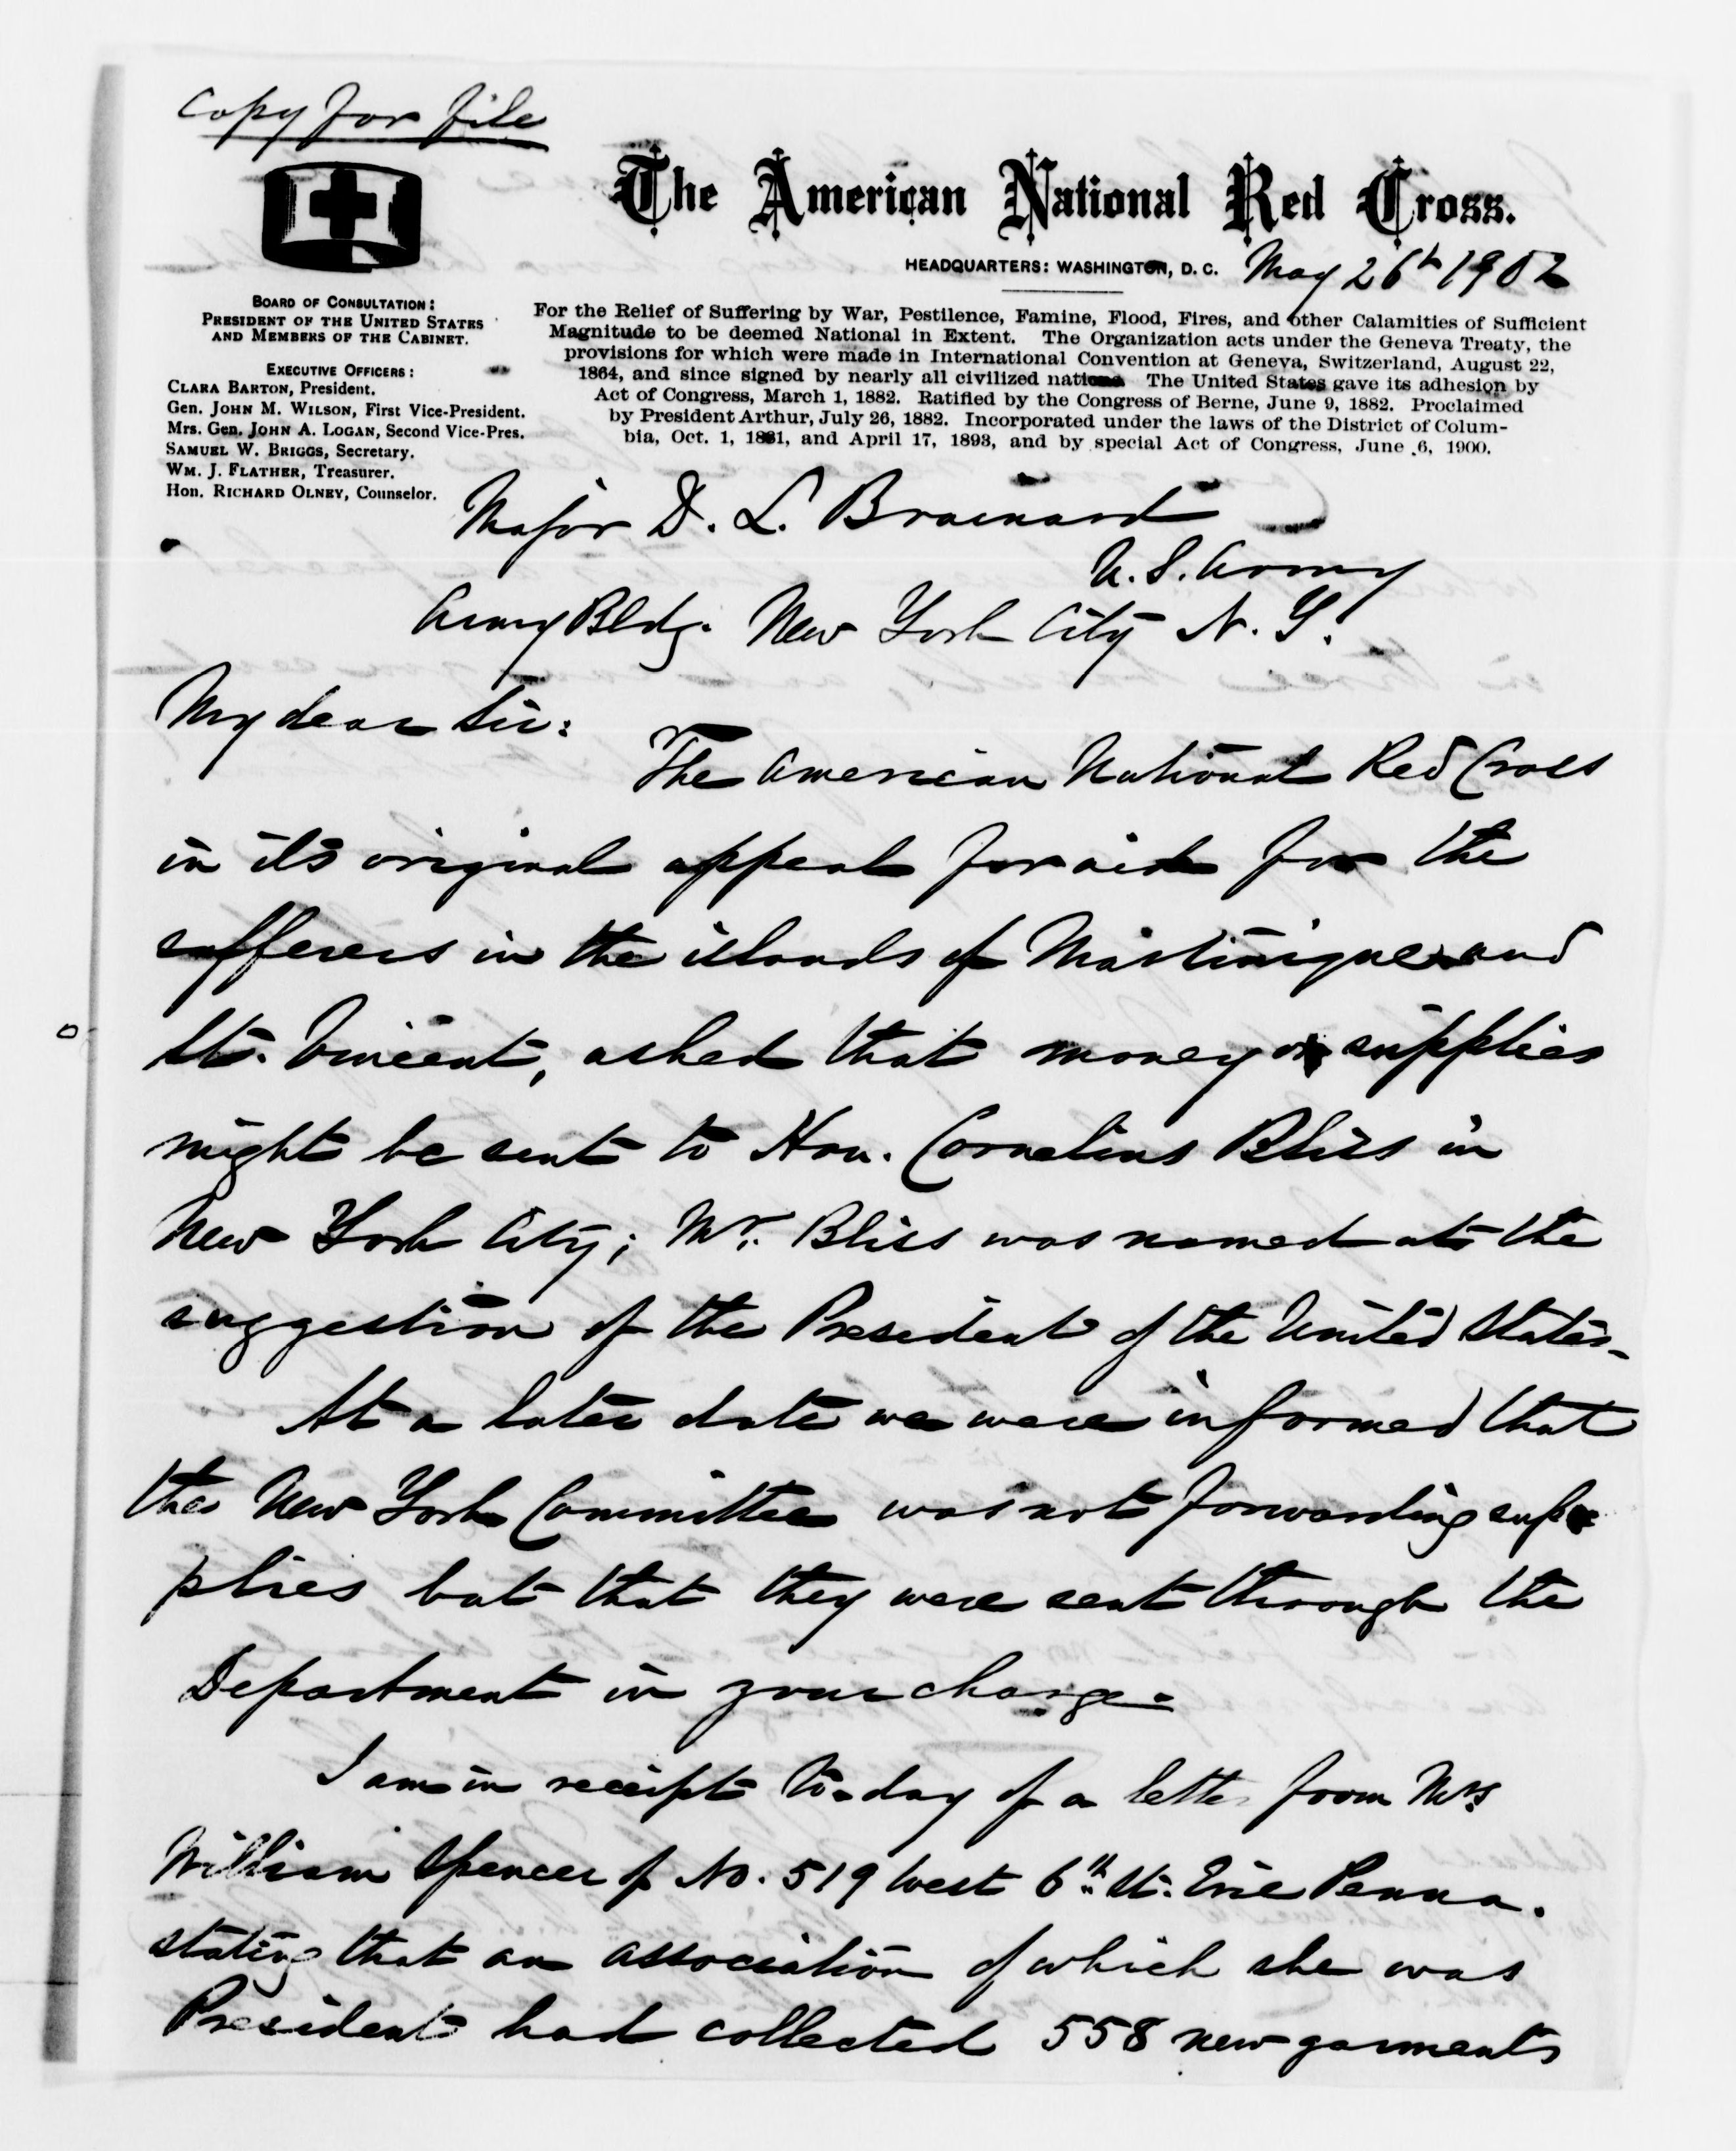 Copy for file
The American National Red Cross.
HEADQUARTERS: WASHINGTON, D. C. May 26th 1902
BOARD OF CONSULTATION:
PRESIDENT OF THE UNITED STATES
AND MEMBERS OF THE CABINET.
EXECUTIVE OFFICERS:
CLARA BARTON, President.
Gen. JOHN M. WILSON, First Vice-President.
Mrs. Gen. JOHN A. LOGAN, Second Vice-Pres.
SAMUEL W. BRIGGS, Secretary.
WM. J. FLATHER, Treasurer.
Hon. RICHARD OLNEY, Counselor.
For the Relief of Suffering by War, Pestilence, Famine, Flood, Fires, and other Calamities of Sufficient
Magnitude to be deemed National in Extent. The Organization acts under the Geneva Treaty, the
provisions for which were made in International Convention at Geneva, Switzerland, August 22,
1864, and since signed by nearly all civilized nations The United States gave its adhesion by
Act of Congress, March 1, 1882. Ratified by the Congress of Berne, June 9, 1882. Proclaimed
by President Arthur, July 26, 1882. Incorporated under the laws of the District of Colum-
bia, Oct. 1, 1881, and April 17, 1893, and by special Act of Congress, June 6, 1900.
Major D. L. Brainard
U. S. Army
Army Bldg. New York City N. Y.
My dear Sir:
The American National Red Cross
in its original appeal for aid for the
sufferers in the islands of Martinique and
St. Vincent, asked that money or supplies
might be sent to Hon. Cornelius Bliss in
New York City; Mr. Bliss was named at the
suggestion of the President of the United States.
At a later date we were informed that
the New York Committee was not forwarding sup-
plies but that they were sent through the
Department in your charge.
I am in receipt to-day of a letter from Mrs
William Spencer of No. 519 West 6th St. Erie Penna.
stating that an association of which she was
President had collected 558 new garments